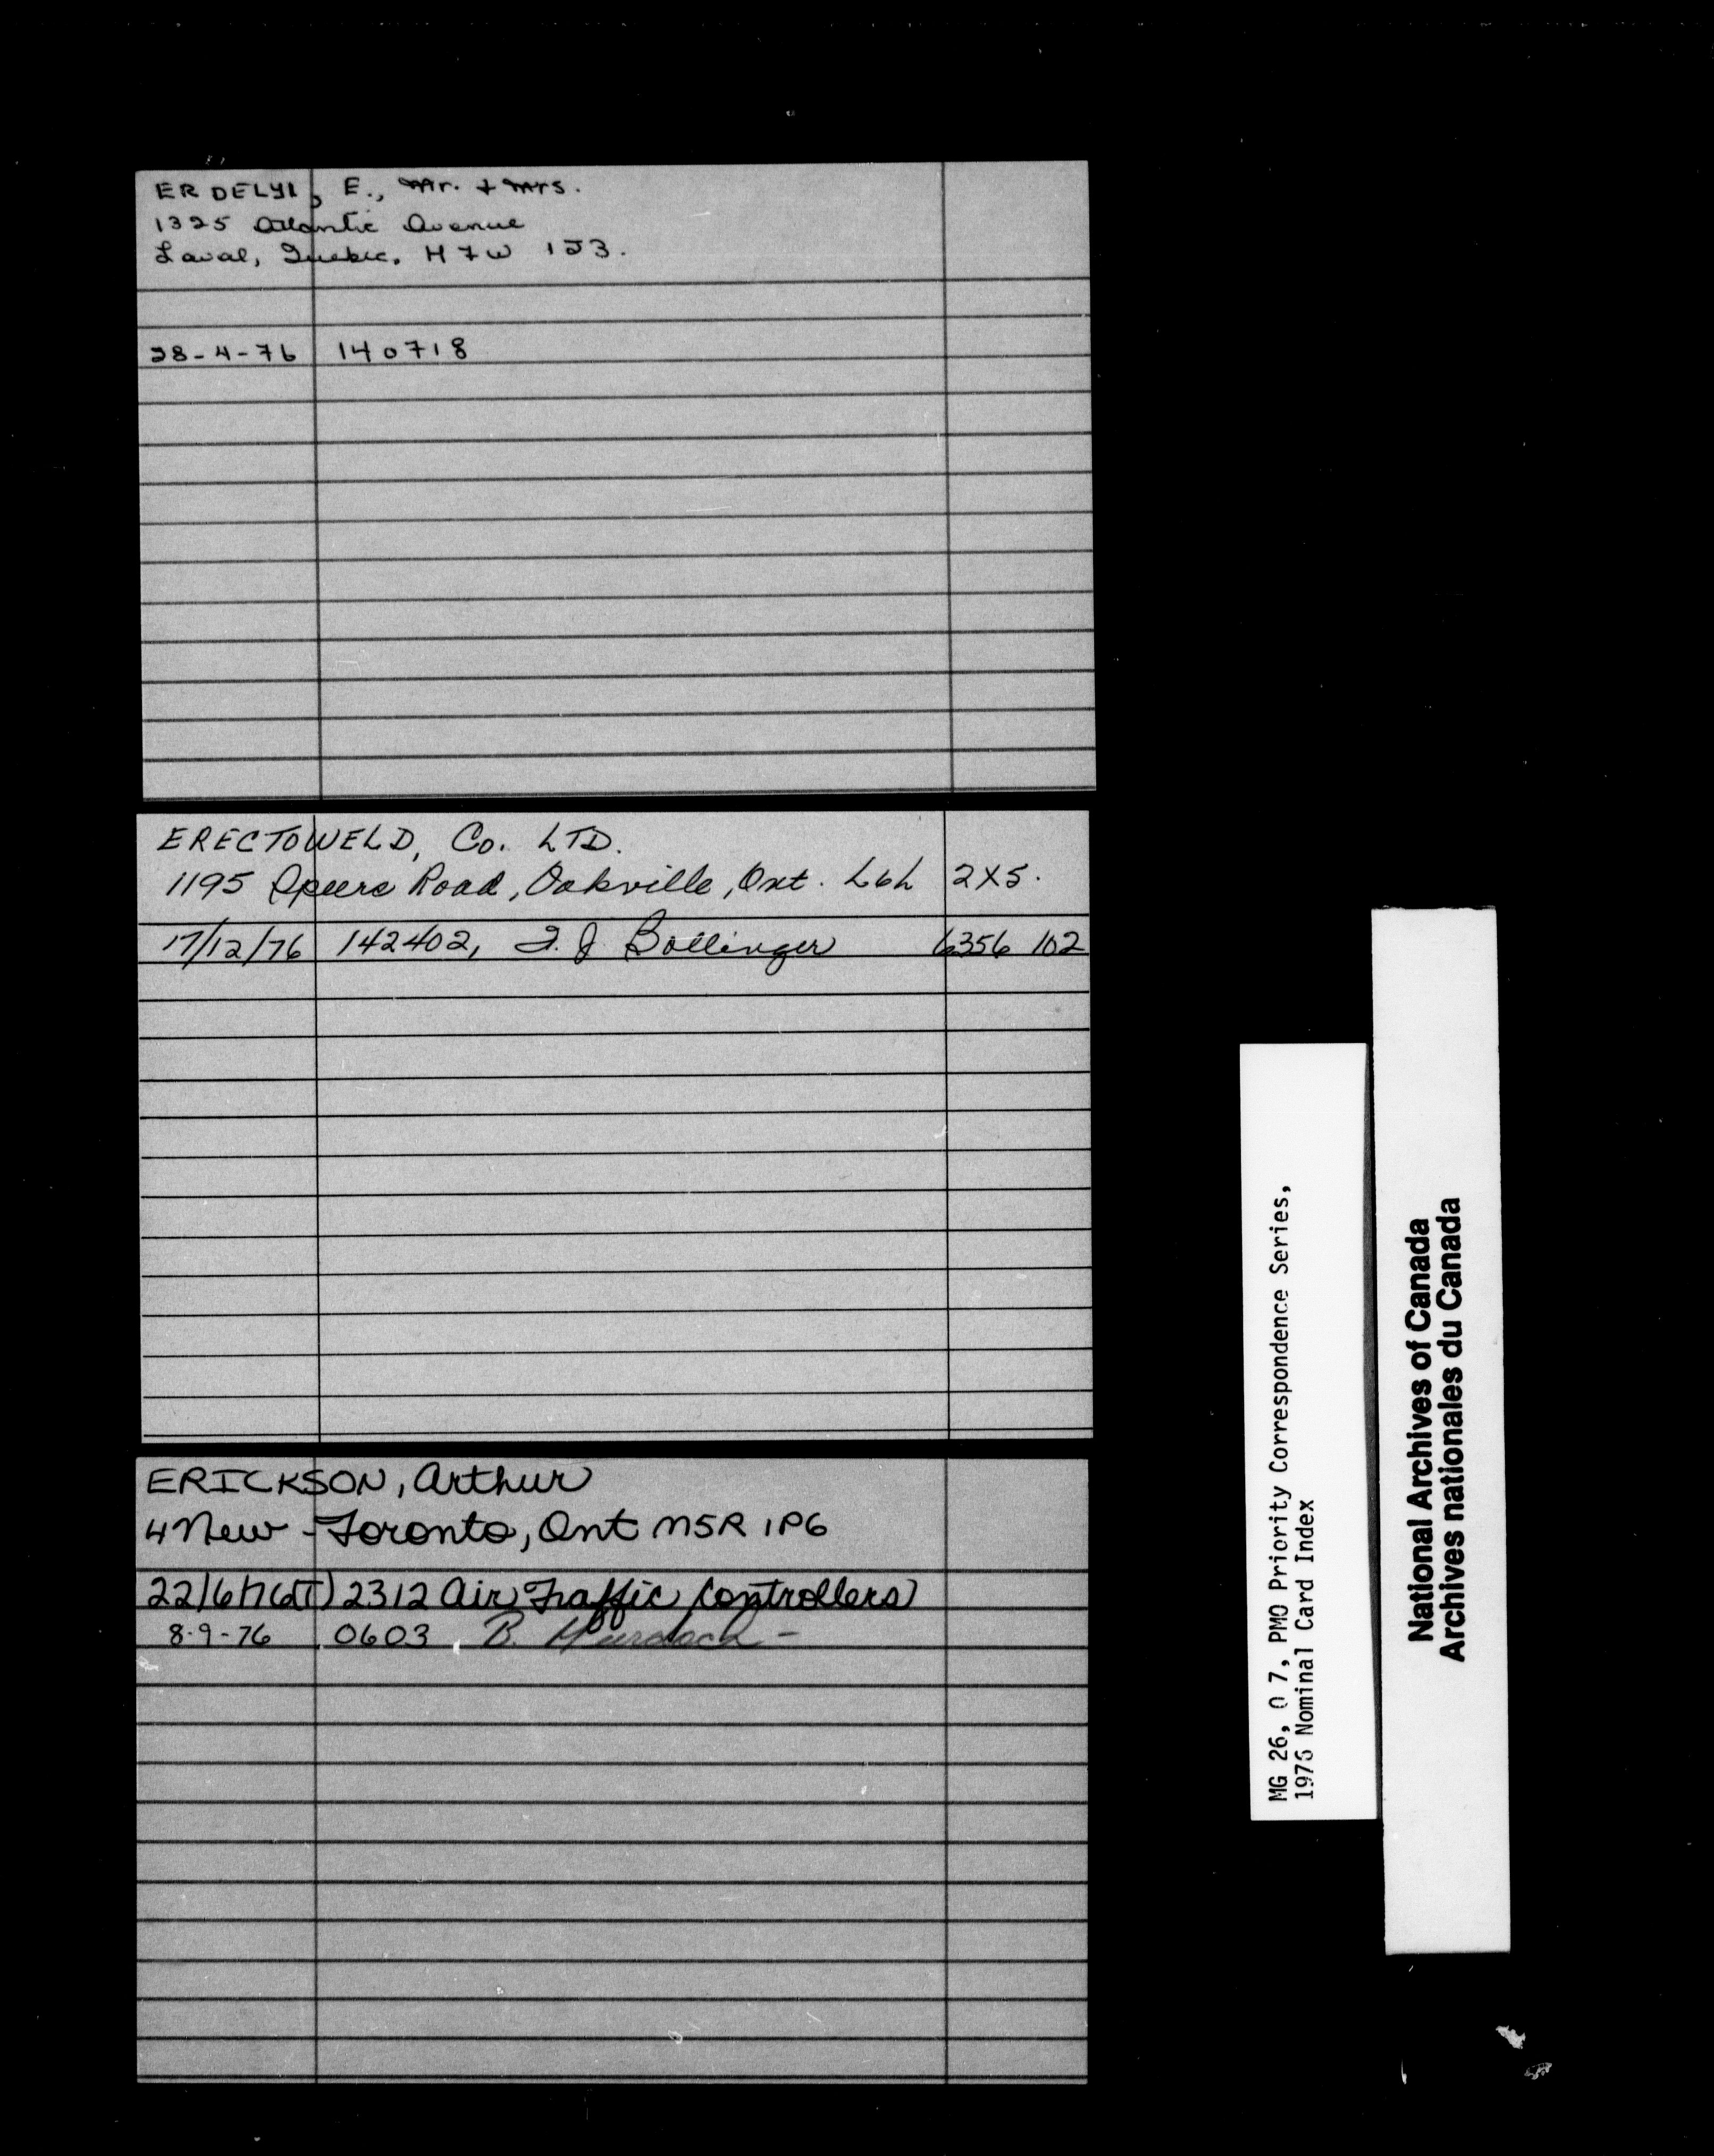 ERDELYI, E., Mr. + Mrs.
1325 Atlantic Avenue
Laval, Quebec. H7W 1J3.
28-4-76 140718
ERECTOWELD, Co. LTD.
1195 Speers Road, Oakville, Ont. L6L 2X5.
17/12/76 142402, J. Bollinger 6356 102
ERICKSON, Arthur
4 New - Toronto, Ont M5R 1P6
22/6/76(T) 2312 Air Traffic Controllers
8-9-76 0603 B. Murdoch -
MG 26, O 7, PMO Priority Correspondence Series,
1976 Nominal Card Index
National Archives of Canada
Archives nationales du Canada